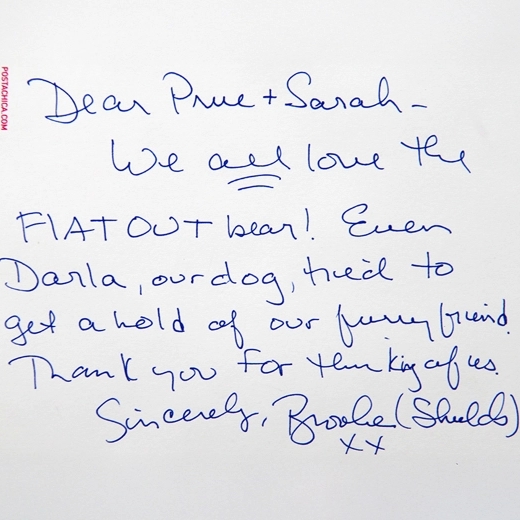 POSTACHICA.COM
Dear Prue + Sarah -
We all love the
FLAT OUT bear! Even
Darla, our dog, tried to
get a hold of our furry friend.
Thank you for thinking of us.
Sincerely, Brooke (Shields)
XX